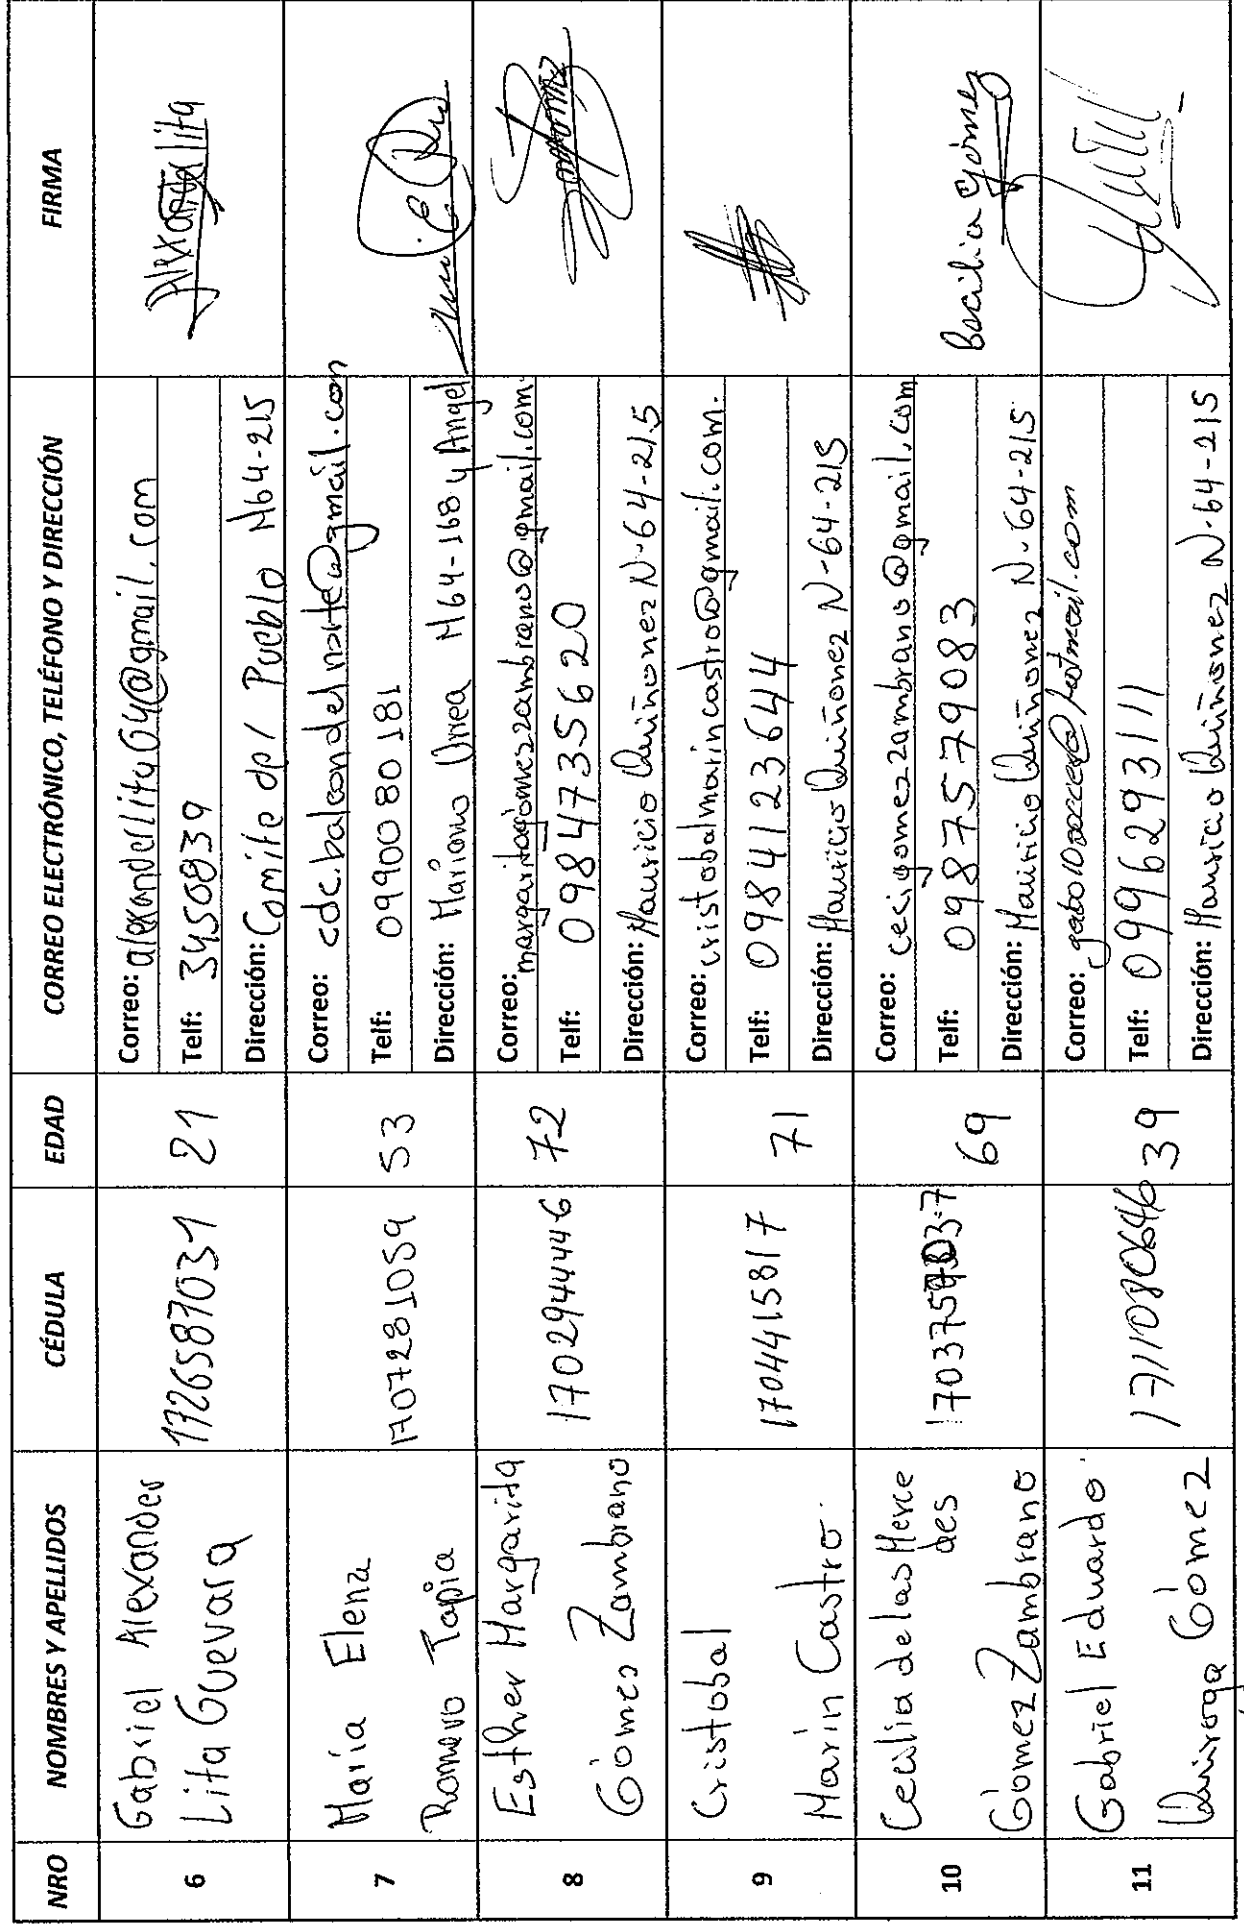 NRO NOMBRES Y APELLIDOS CÉDULA EDAD CORREO ELECTRÓNICO, TELÉFONO Y DIRECCIÓN FIRMA
6
Gabriel Alexander
Lita Guevara
1726587031
21
Correo: alexanderlita64@gmail.com
Telf: 3450839
Dirección: Comite del Pueblo N64-215
Alexander lita
7
María Elena
Romero Tapia
1707281059
53
Correo: cdc.balcondelnorte@gmail.com
Telf: 0990080181
Dirección: Mariano Urrea N64-168 y Angel
8
Esther Margarita
Gómez Zambrano
1702944446
72
Correo: margaritagómezzambrano@gmail.com.
Telf: 0984735620
Dirección: Mauricio Quiñonez N-64-215
9
Cristobal
Marin Castro.
1704415817
71
Correo: cristobalmarincastro@gmail.com.
Telf: 0984123644
Dirección: Mauricio Quiñonez N-64-215
10
Cecilia de las Merce
des
Gómez Zambrano
69
Correo: cecigomezzambrano@gmail.com
Telf: 0987579083
Dirección: Mauricio Quiñonez N-64-215
Cecilia Gómez
11
Gabriel Eduardo
Quiroga Gómez
1711080646
39
Correo:
Telf: 0996293111
Dirección: Mauricio Quiñonez N-64-215